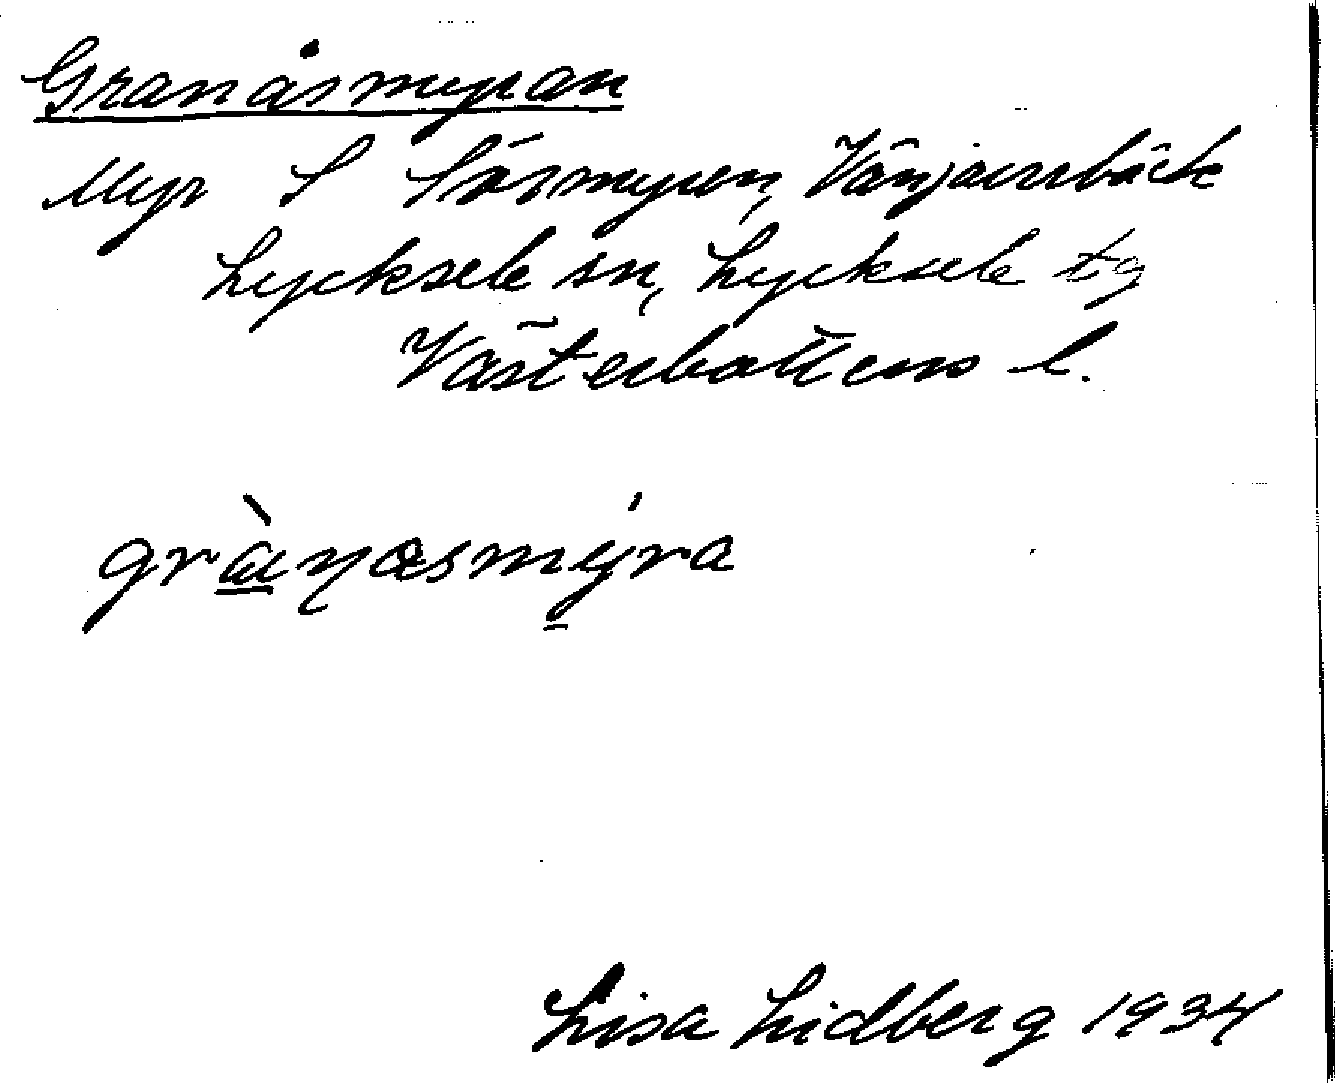 Granåsmyran
Myr S Sörmyren, Vänjaurbäck
Lycksele sn, Lycksele tg
Västerbottens l.
grànasmýra
Lisa Lidberg 1934